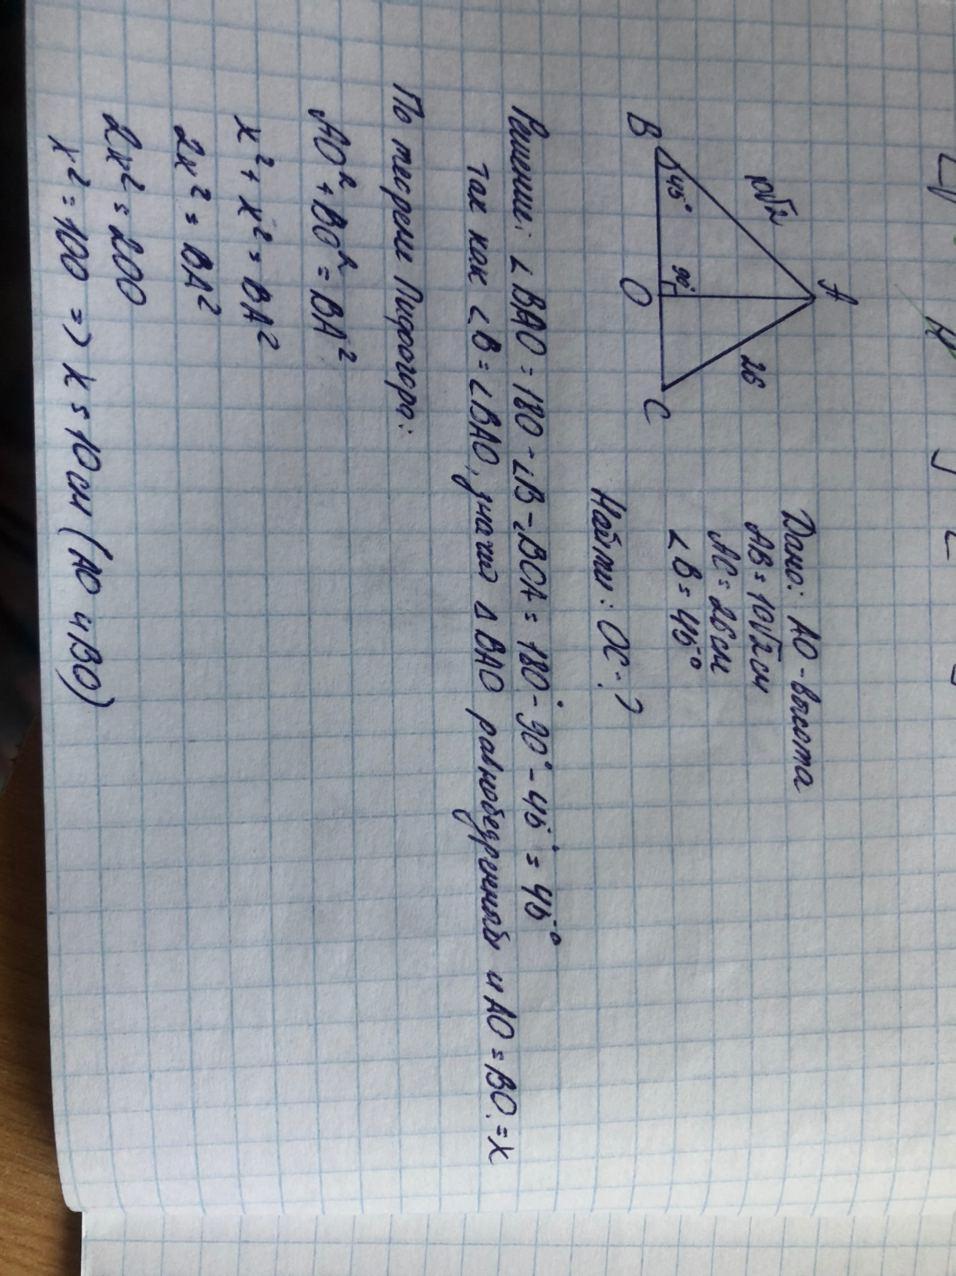 A
10√2
26
45°
90°
B
O
C
Дано: AO - высота
AB = 10√2 см
AC = 26 см
∠B = 45°
Найти: OC - ?
Решение: ∠BAO = 180 - ∠B - ∠BOA = 180° - 90° - 45° = 45°
так как ∠B = ∠BAO, значит Δ BAO равнобедренный и AO = BO. = x
По теореме Пифагора:
AO² + BO² = BA²
x² + x² = BA²
2x² = BA²
2x² = 200
x² = 100 => x = 10 см (AO и BO)